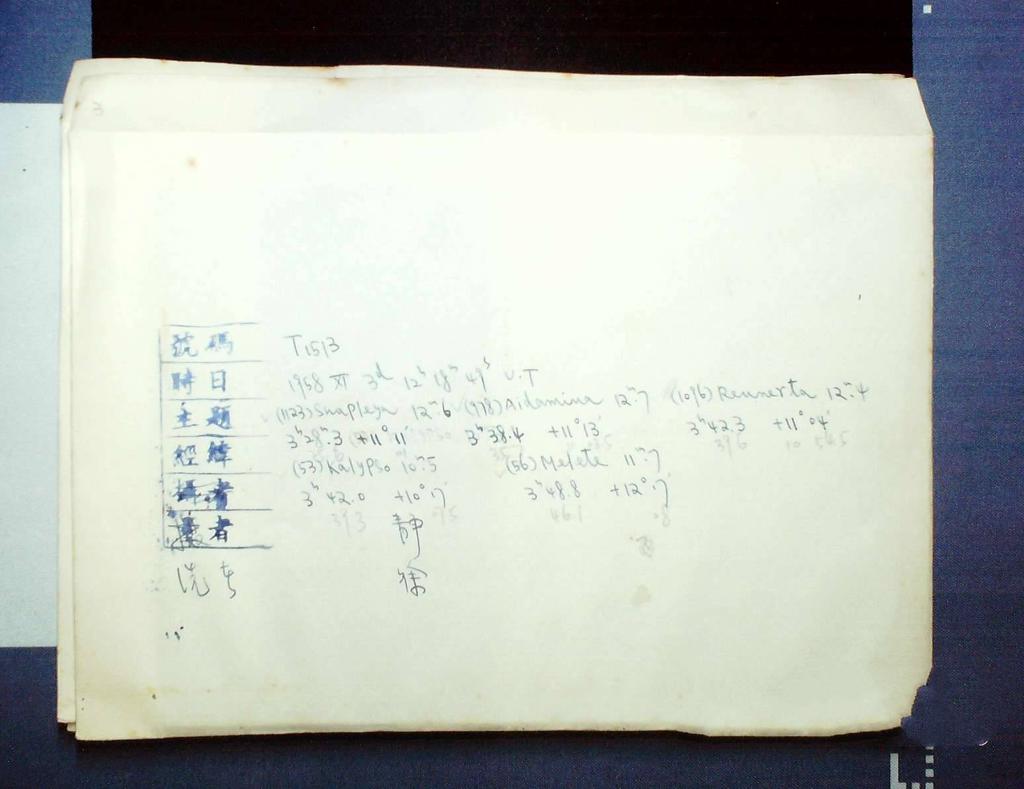 3
號碼 T1513
時日 1958 XI 3ᵈ 12ʰ 18ᵐ 49ˢ U.T
主題 (1123) Shapleya 12ᵐ.6 (978) Aidamina 12ᵐ.7 (1096) Reunerta 12ᵐ.4
3ʰ28ᵐ.3 +11°11′ 3ʰ38.4 +11°13′ 3ʰ42.3 +11°04′
經緯 (53) Kalypso 10ᵐ.5 (56) Melete 11ᵐ.7
3ʰ42.0 +10°.7 3ʰ48.8 +12°.7
者 靜
洗者 徐